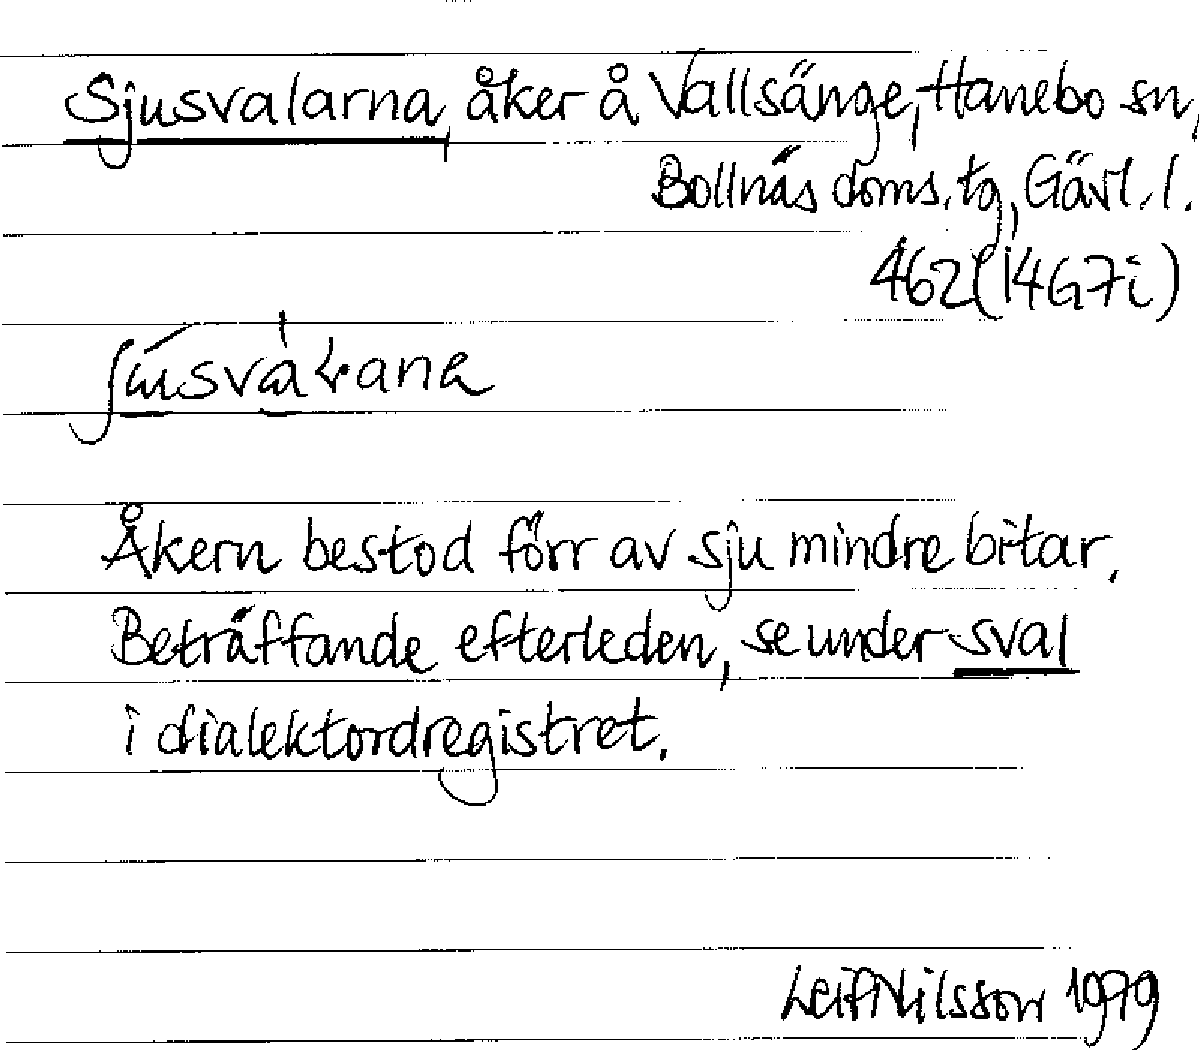 Sjusvalarna, åker å Vallsänge, Hanebo sn,
Bollnäs doms. tg, Gävl. l.
462 (14G7i)
Åkern bestod förr av sju mindre bitar.
Beträffande efterleden, se under sval
i dialektordregistret.
Leif Nilsson 1979